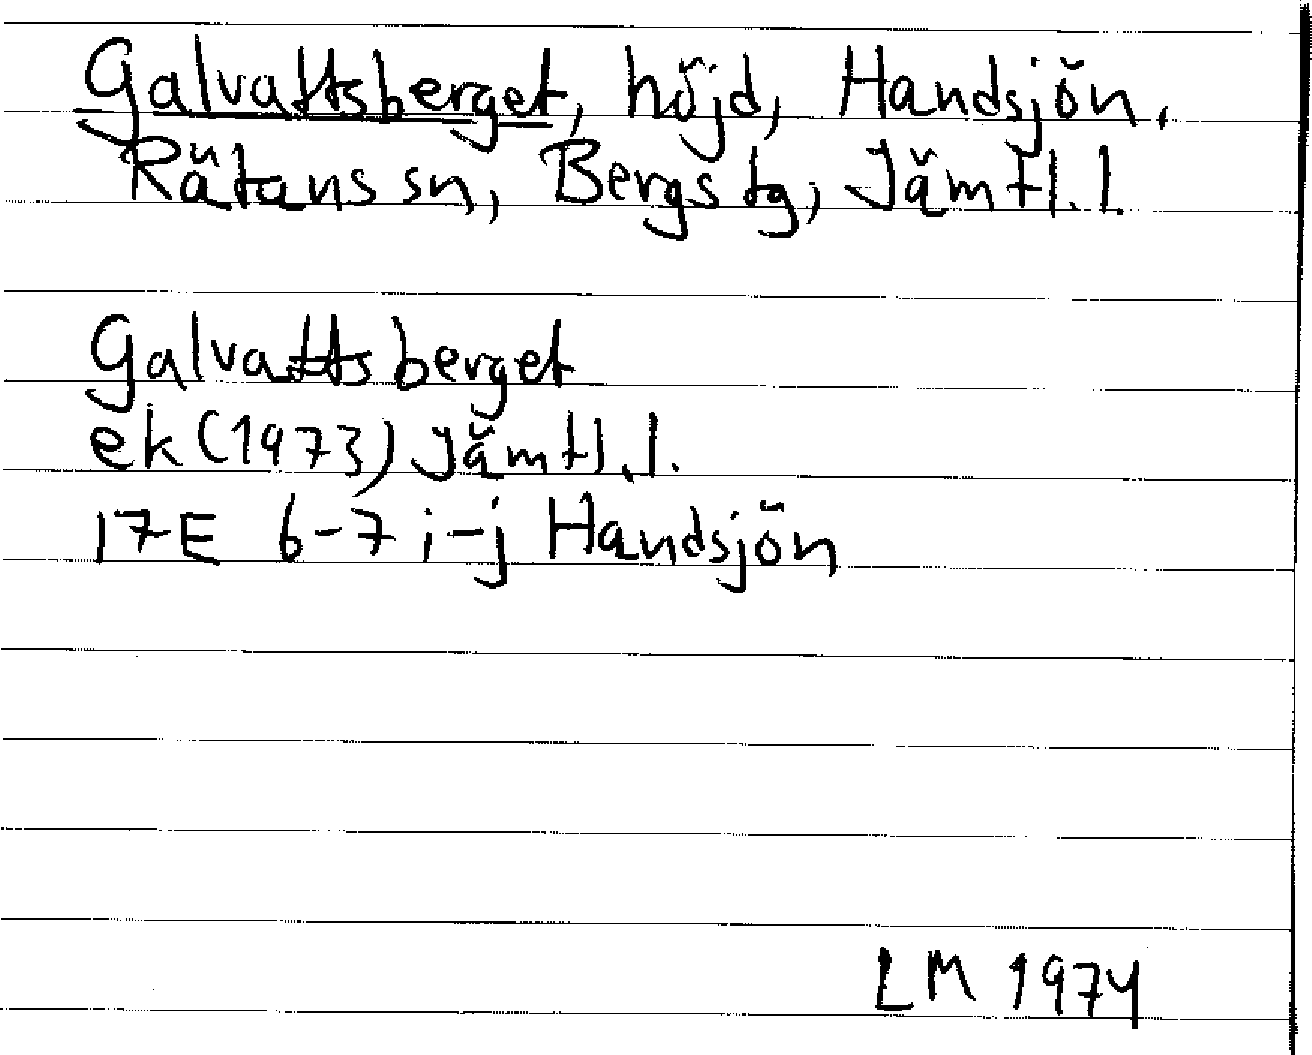 Galvattsberget, höjd, Handsjön,
Rätans sn, Bergs tg, Jämtl. l.
Galvattsberget
ek (1973) Jämtl. l.
17E 6-7 i-j Handsjön
LM 1974